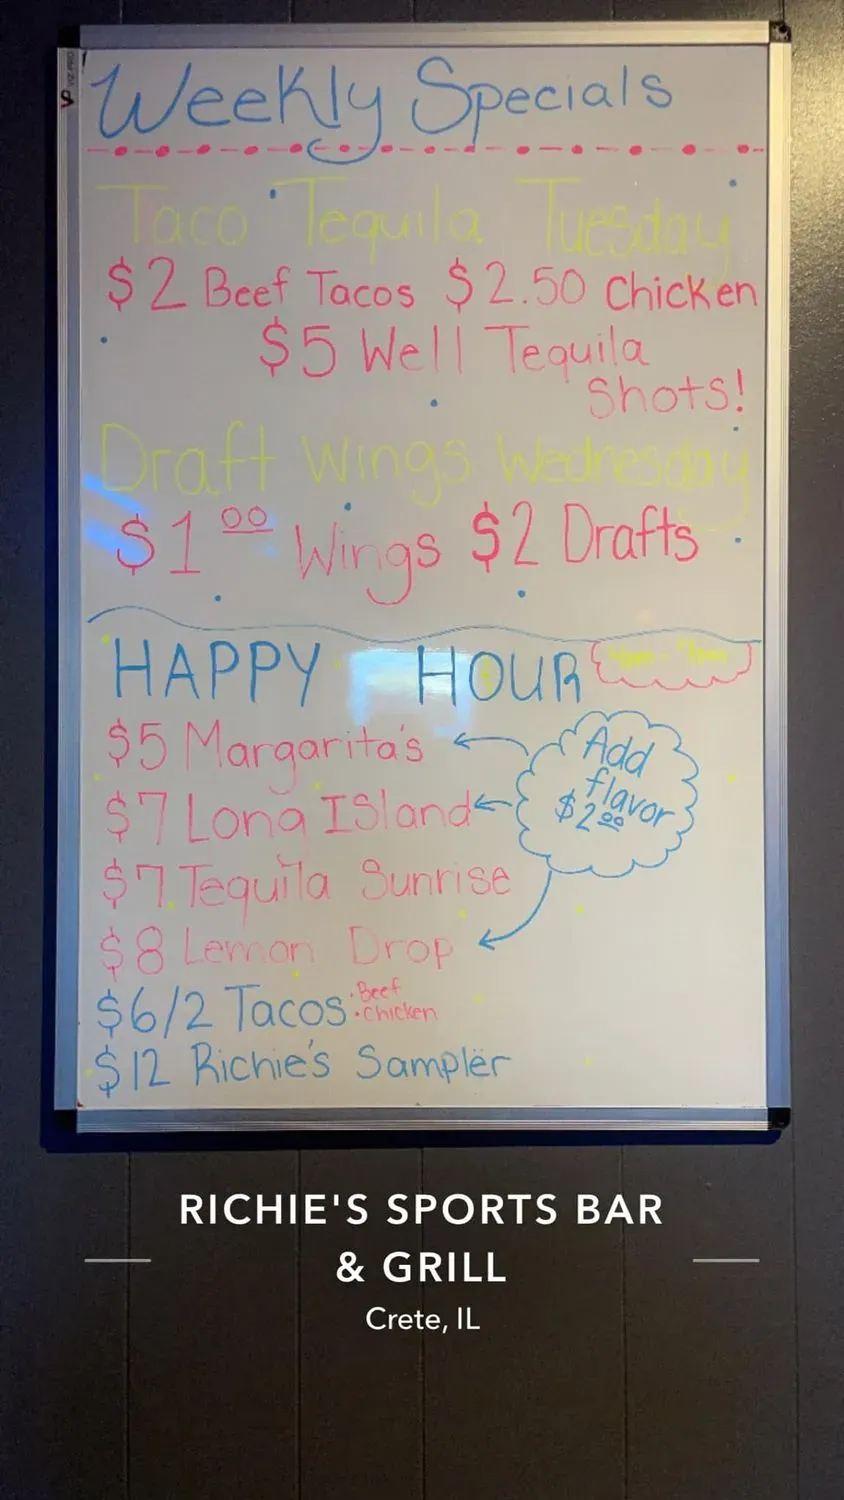 Weekly Specials
Taco Tequila Tuesday
$2 Beef Tacos $2.50 Chicken
$5 Well Tequila
Shots!
Draft Wings Wednesday
$1.00 Wings $2 Drafts
HAPPY HOUR
$5 Margarita's
Add
flavor
$2.00
$7 Long Island
$7 Tequila Sunrise
$8 Lemon Drop
$6/2 Tacos
·Beef
·Chicken
$12 Richie's Sampler
RICHIE'S SPORTS BAR
& GRILL
Crete, IL